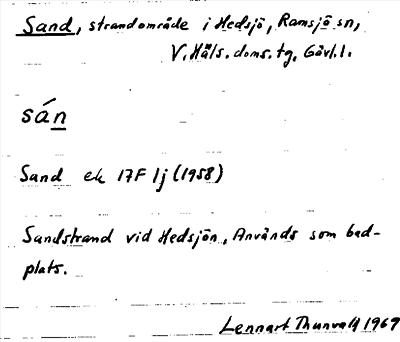 Sand, strandområde i Hedsjö, Ramsjö sn,
V. Häls. doms. tg, Gävl. l.
sán
Sand ek 17F Ij (1958)
Sandstrand vid Hedsjön, Används som bad-
plats.
Lennart Thunvall 1969